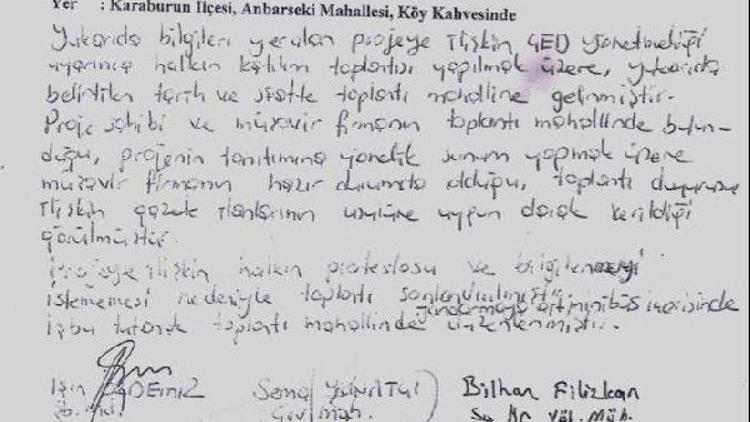 Yer : Karaburun İlçesi, Anbarseki Mahallesi, Köy Kahvesinde
Yukarıda bilgileri verilen projeye ilişkin ÇED Yönetmeliği
uyarınca halkın katılım toplantısı yapılmak üzere, yukarıda
belirtilen tarih ve saatte toplantı mahalline gelinmiştir.
Proje sahibi ve müşavir firmanın toplantı mahallinde bulun-
duğu, projenin tanıtımına yönelik sunum yapmak üzere
müşavir firmanın hazır durumda olduğu, toplantı duyurusuna
ilişkin gazete ilanlarının usulüne uygun olarak verildiği
görülmüştür.
Projeye ilişkin halkın protestosu ve bilgilenmeyi
istememesi nedeniyle toplantı sonlandırılmıştır.
jandarmaya ait minibüs içerisinde
İşbu tutanak toplantı mahallinde düzenlenmiştir.
Işın Sena Bilhan Filizkan
Müh.